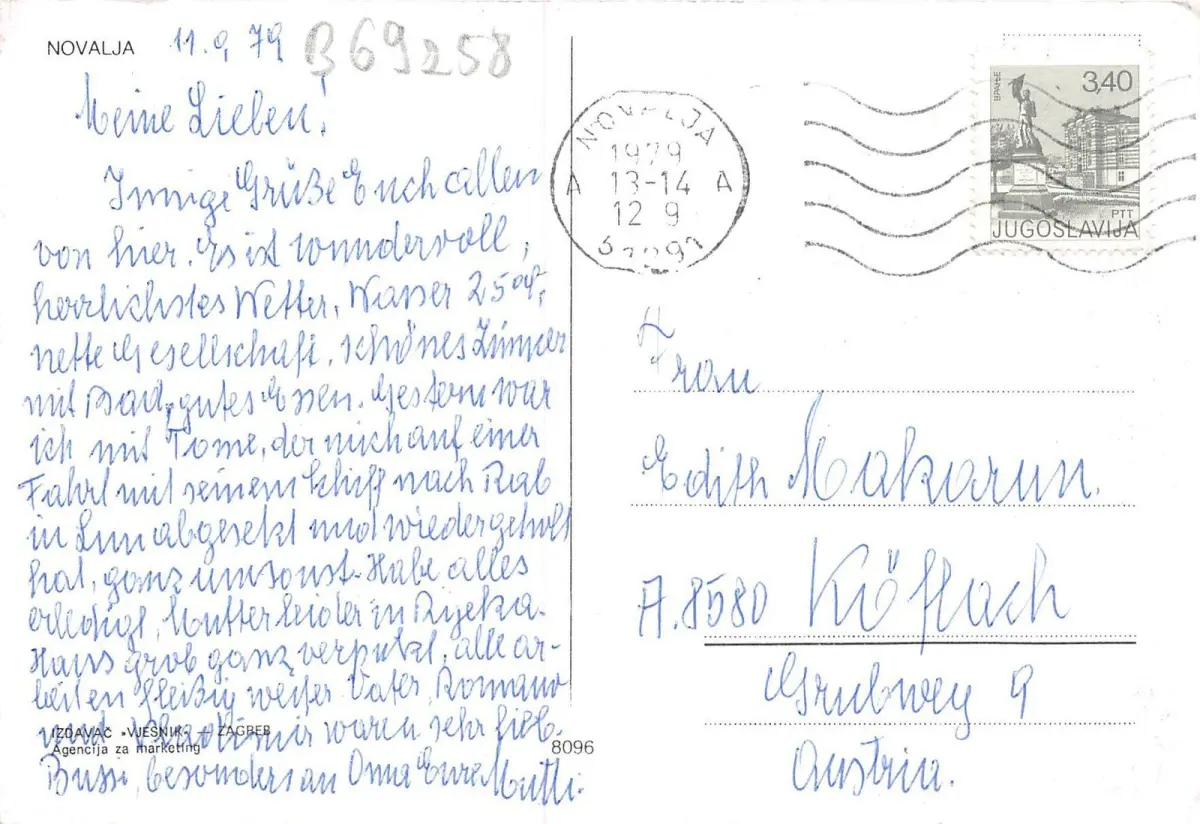 NOVALJA 11.9.79 B 69258
Meine Lieben!
Innige Grüße Euch allen
von hier. Es ist wundervoll,
herrlichstes Wetter, Wasser 25 Gr,
nette Gesellschaft, schönes Zimmer
mit Bad, gutes Essen. Gestern war
ich mit Tome, der mich auf einer
Fahrt mit seinem Schiff nach Rab
in Lun abgesetzt und wiedergeholt
hat, ganz umsonst. Habe alles
erledigt, Mutter leider in Rijeka.
Haus grob ganz verputzt, alle ar-
beiten fleißig weiter. Vater, Romano
und Vladimir waren sehr lieb.
Bussi, besonders an Oma Eure Mutti.
IZDAVAČ »VJESNIK« — ZAGREB
Agencija za marketing
8096
NOVALJA
1979
A 13-14 A
12 9
ВРАЊЕ
3,40
PTT
JUGOSLAVIJA
Frau
Edith Makarun.
A.8580 Köflach
Grubweg 9
Austria.